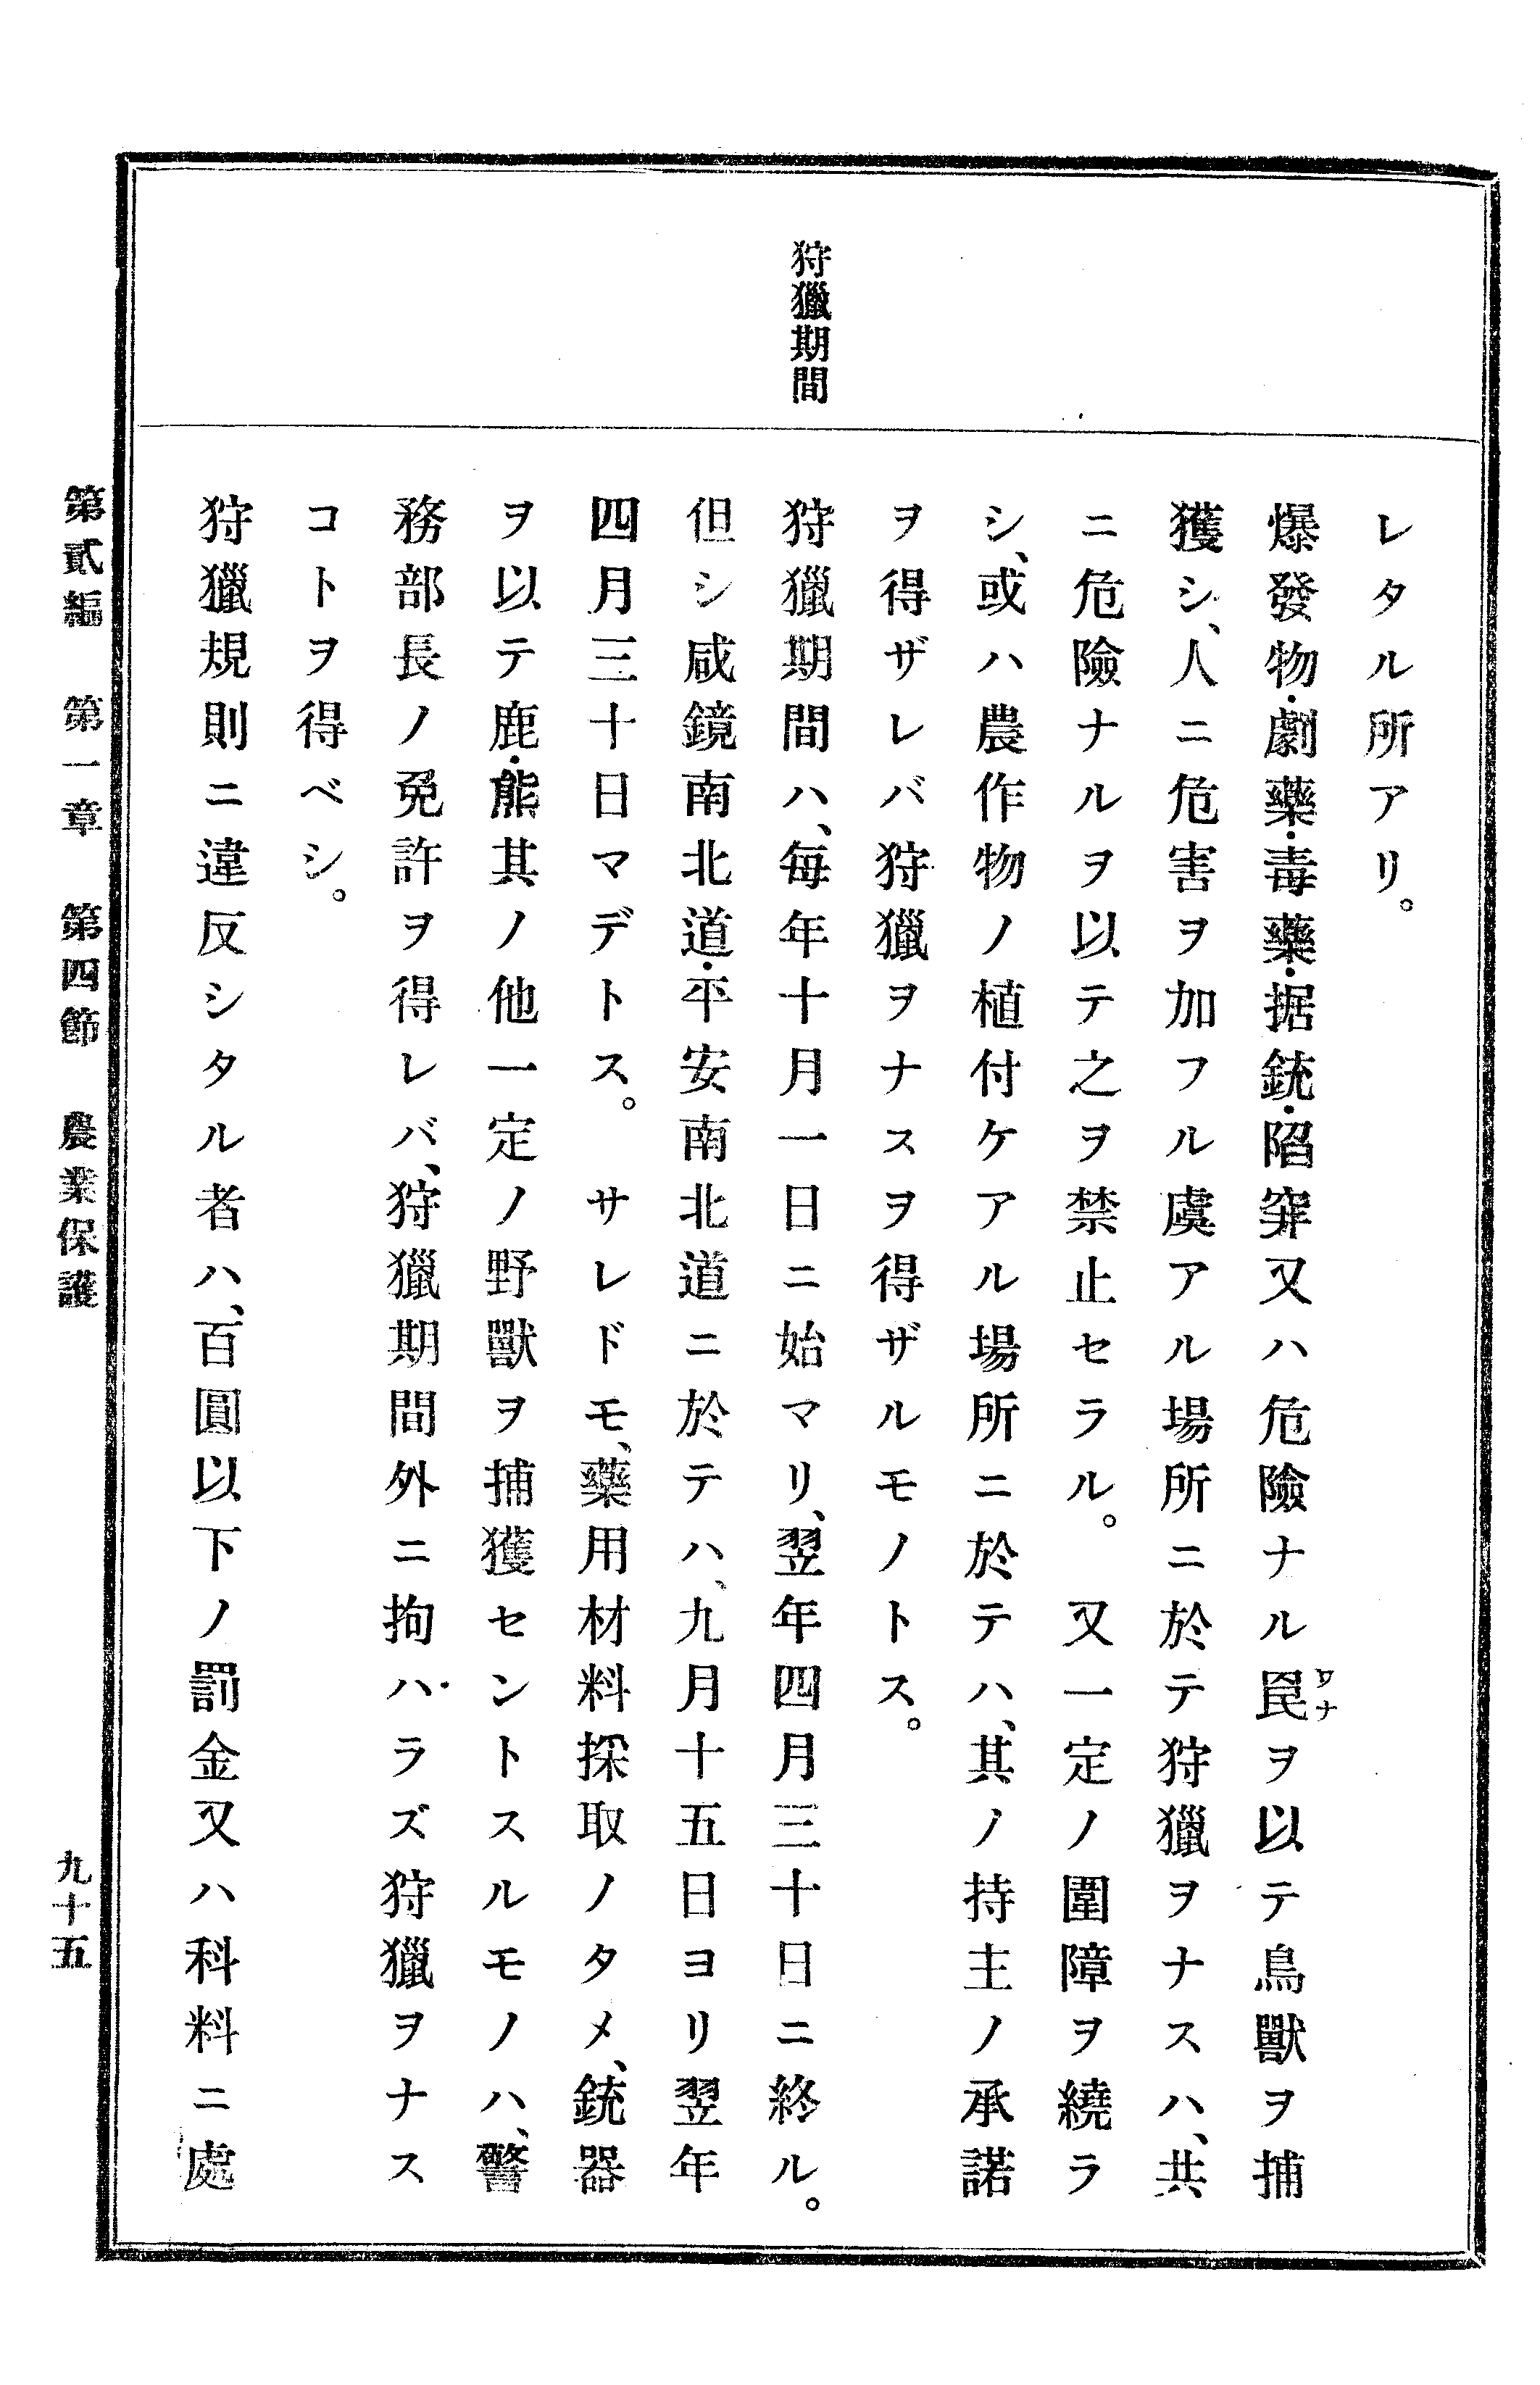 狩獵期間
レタル所アリ。
爆發物・劇藥・毒藥・据銃・陷穽又ハ危險ナル罠ヲ以テ鳥獸ヲ捕
ワナ
獲シ、人ニ危害ヲ加フル虞アル場所ニ於テ狩獵ヲナスハ、共
ニ危險ナルヲ以テ之ヲ禁止セラル。又一定ノ圍障ヲ繞ラ
シ、或ハ農作物ノ植付ケアル場所ニ於テハ、其ノ持主ノ承諾
ヲ得ザレバ狩獵ヲナスヲ得ザルモノトス。
狩獵期間ハ、每年十月一日ニ始マリ、翌年四月三十日ニ終ル。
但シ咸鏡南北道・平安南北道ニ於テハ、九月十五日ヨリ翌年
四月三十日マデトス。サレドモ、藥用材料採取ノタメ、銃器
ヲ以テ鹿・熊其ノ他一定ノ野獸ヲ捕獲セントスルモノハ、警
務部長ノ免許ヲ得レバ、狩獵期間外ニ拘ハラズ狩獵ヲナス
コトヲ得ベシ。
狩獵規則ニ違反シタル者ハ、百圓以下ノ罰金又ハ科料ニ處
第貳編 第一章 第四節 農業保護
九十五